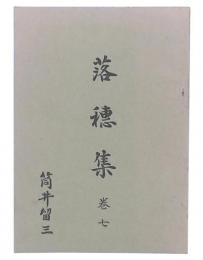 落穂集
巻七
筒井留三